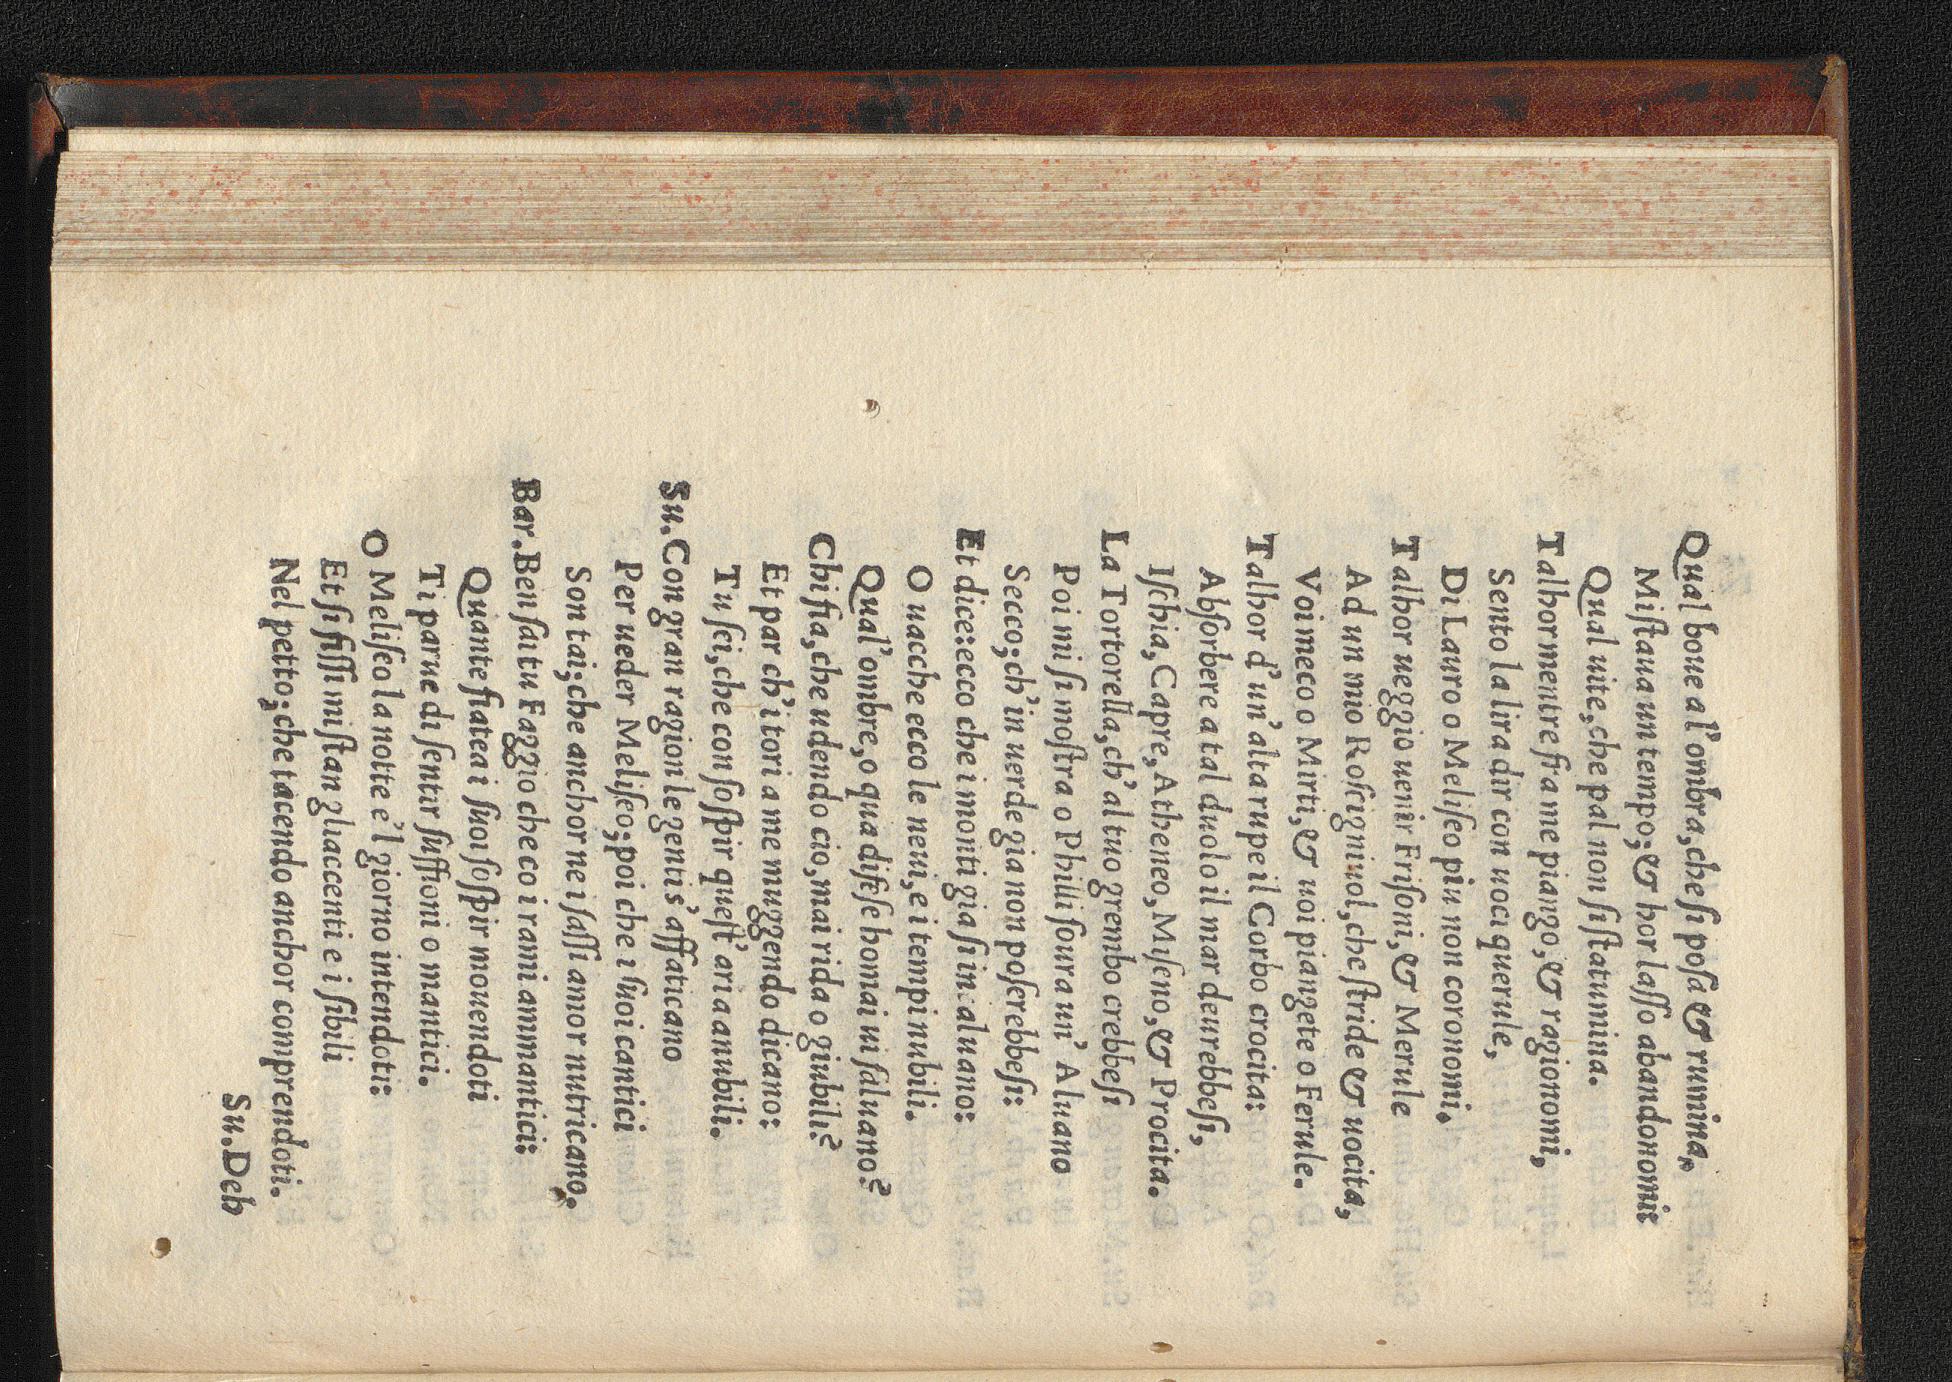 Qual boue a l'ombra, che si posa & rumina,
Mi staua un tempo; & hor lasso abandonomi:
Qual uite, che pal non si statumina.
Talhor mentre fra me piango, & ragionomi,
Sento la lira dir con uoci querule,
Di Lauro o Meliseo piu non coronomi.
Talhor ueggio uenir Frisoni, & Merule
Ad un mio Roscigniuol, che stride & uocita,
Voi meco o Mirti, & uoi piangete o Ferule.
Talhor d'un' alta rupe il Corbo crocita:
Absorbere a tal duolo il mar deurebbesi,
Ischia, Capre, Atheneo, Miseno, & Procita.
La Tortorella, ch' al tuo grembo crebbesi
Poi mi si mostra o Philli soura un' Aluano
Secco; ch' in uerde gia non poserebbesi:
Et dice: ecco che i monti gia si incaluano:
O uacche ecco le neui, e i tempi nubili.
Qual' ombre, o qua difese homai ui saluano?
Chi fia, che udendo cio, mai rida o giubili?
Et par ch' i tori a me muggendo dicano:
Tu sei, che con sospir quest' aria annubili.
Su. Con gran ragion le genti s' affaticano
Per ueder Meliseo; poi che i suoi cantici
Son tai; che anchor ne i sassi amor nutricano.
Bar. Ben sai tu Faggio che co i rami ammantici:
Quante fiate a i suoi sospir mouendoti
Ti parue di sentir suffioni o mantici.
O Meliseo la notte e'l giorno intendoti:
Et si fissi mi stan gli accenti e i sibili
Nel petto; che tacendo anchor comprendoti.
Su. Deh